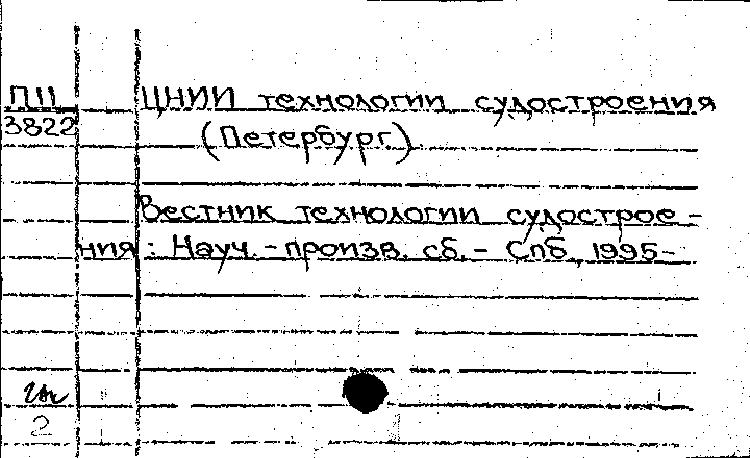 П11 ЦНИИ технологии судостроения
3822 (Петербург.)
Вестник технологии судострое-
ния : Науч.-произв. сб. - Спб, 1995-
2